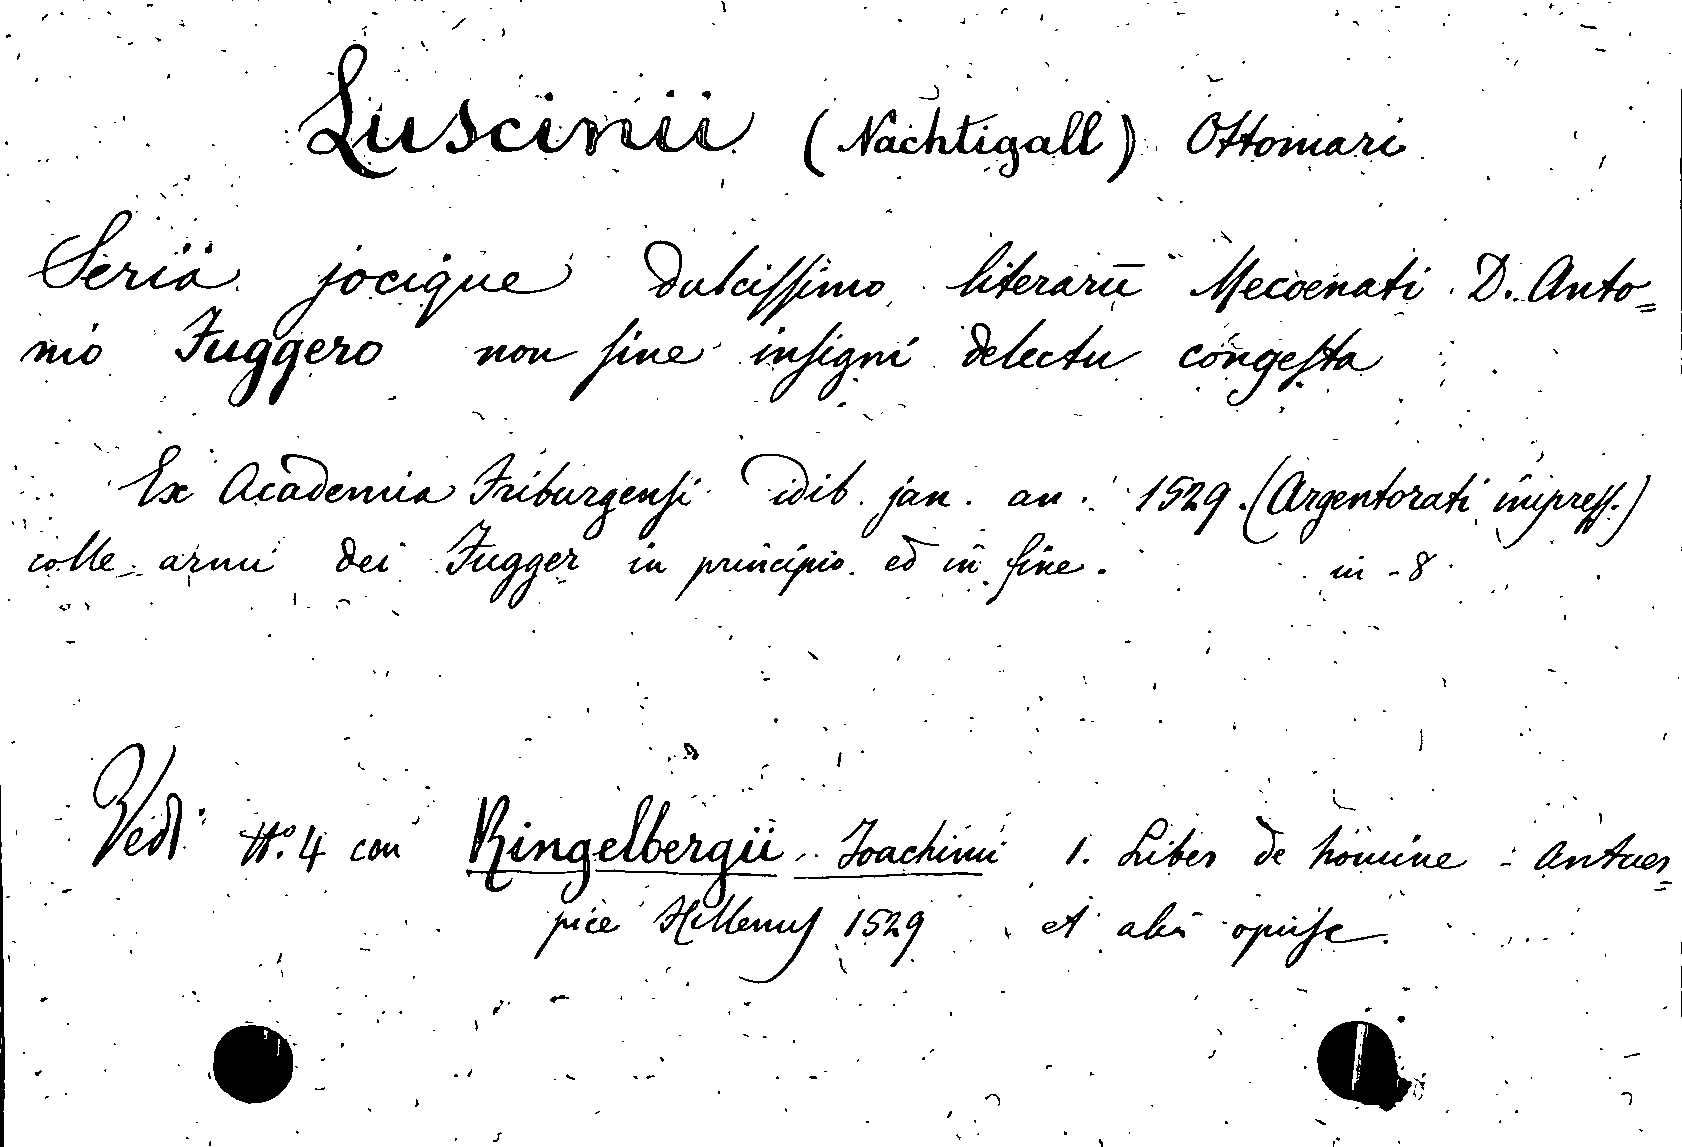 Luscinii (Nachtigall) Ottomari
Seria jocique dulcissimo literarū Mecoenati D. Anto=
nio Fuggero non sine insigni delectu congesta
Ex Academia Friburgensi idib. jan. an. 1529. (Argentorati impress.)
colle armi dei Fugger in principio ed in fine. in-8
Vedi No. 4 con Ringelbergii Joachimi 1. Liber de homine - Antuer=
piæ Hillenus 1529 et alii opusc.